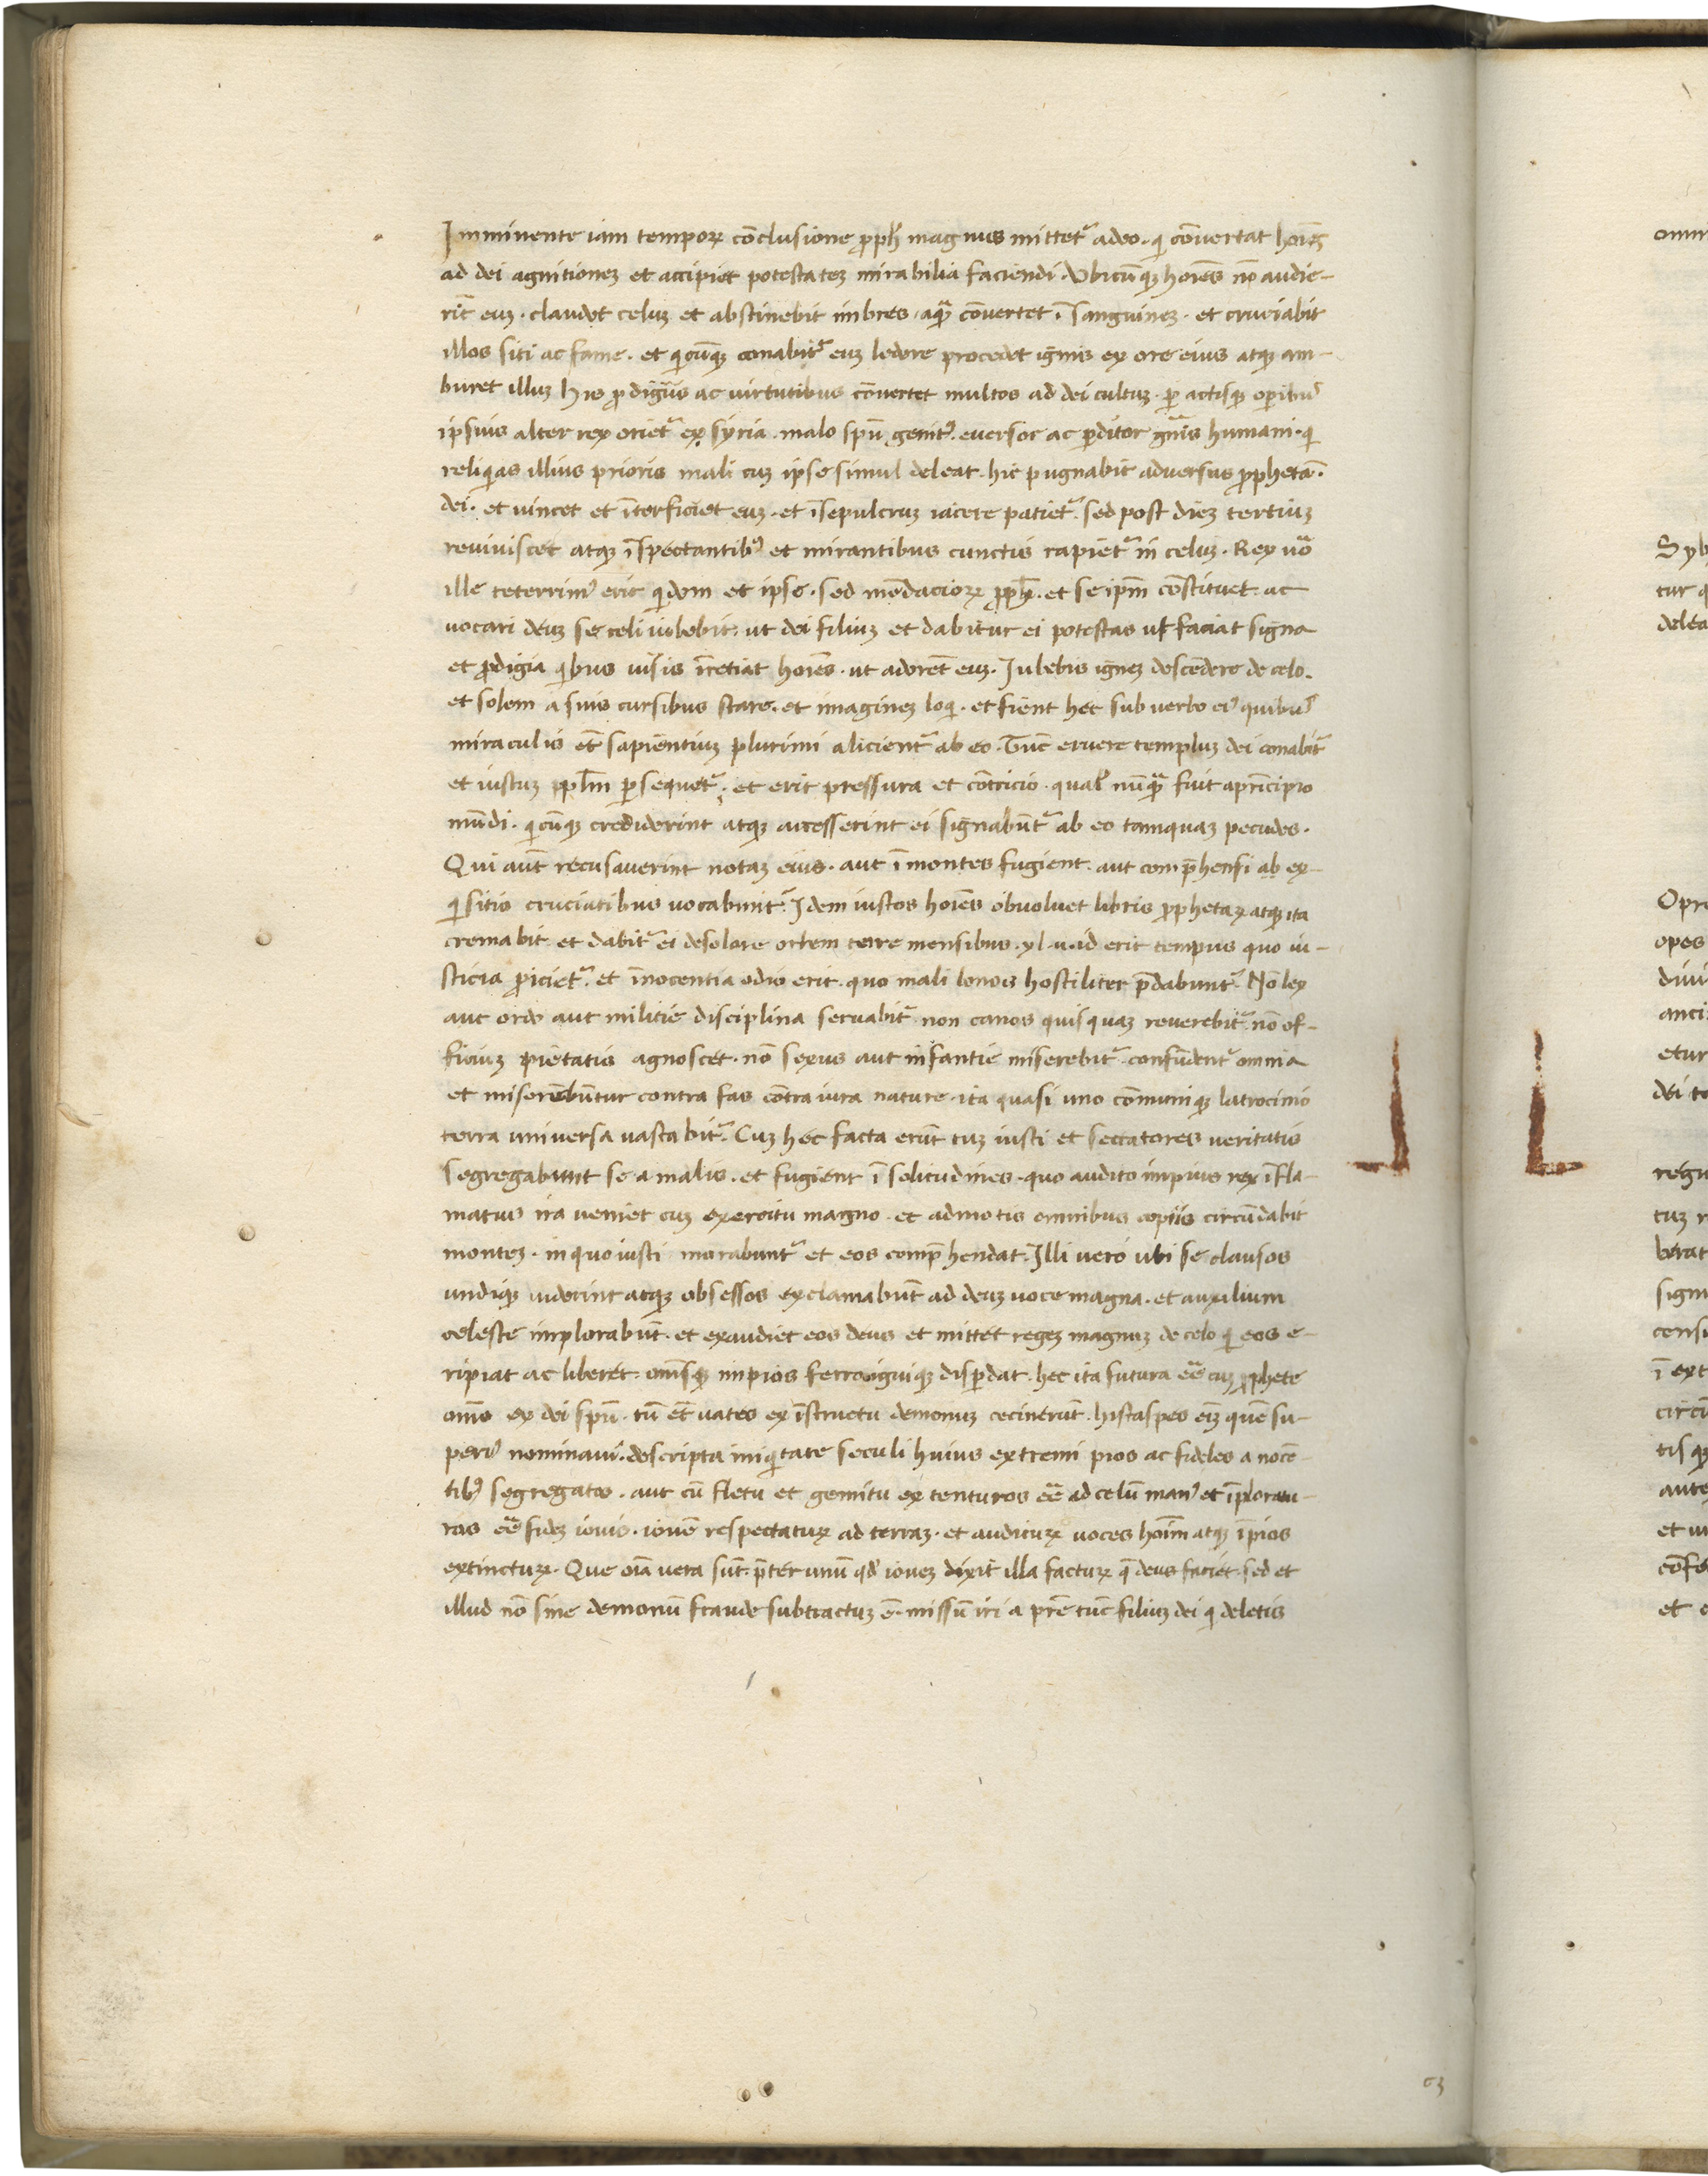 Imminente iam temporꝝ cōclusione ꝓph̄ magnus mittet᷑ adeo · qi cōvertat hoīes
ad dei agnitionez et accipiet potestatez mirabilia faciendi · Vbicūqz hoīes nō audie-
rīt euz · claudet celuz et abstinebit imbres · aquā cōvertet ī sanguinez · et cruciabit
illos siti ac fame · et qicūqz conabit᷑ euz ledere procedet ignis ex ore eius atqz com-
buret illuz his ꝓdigiis ac virtutibus cōvertet multos ad dei cultuz · ꝑactisqz oꝑibus
ipsius alter rex oriet᷑ ex syria · malo spū genitꝰ · eversor ac ꝑditor gn̄is humani · qi
reliqias illius prioris mali cuz ipse simul deleat · hic pugnabit adversus ꝓphetā ·
dei · et vincet et īterficiet euz · et īsepulcruz iacere patiet᷑ · sed post diez tertiuz
reviviscet atqz īspectantibꝰ et mirantibus cunctis rapiet᷑ in celuz · Rex vo
ille teterrimꝰ erit qidem et ipse · sed mēdacioꝝ ꝓph̄ · et se ipm̄ cōstituet ac
vocari deuz se celi iubebit · ut dei filiuz et dabitur ei potestas ut faciat signa
et ꝓdigia qibus visis īretiat hoīes · ut adorēt euz · Iubebit ignez descēdere de celo ·
et solem a suis cursibus stare · et imaginez loqi · et fient hec sub verbo eiꝰ quibus
miraculis et̄ sapientiuz plurimi alicient᷑ ab eo · Tūc eruere templuz dei conabit᷑
et iustuz ppl̄m ꝑsequet᷑ · et erit pressura et cōtricio · qual' nūqā fuit aprīcipio
mūdi · qicūqz crediderint atqz accesserint ei signabūt᷑ ab eo tamquaz pecudes ·
Qui aūt recusaverint notaz eius · aut ī montes fugient · aut comp̄hensi ab ex-
qisitis cruciatibus necabunt᷑ · Idem iustos hoīes obvolvet libris ꝓphetaꝝ atqz ita
cremabit et dabit᷑ ei desolare orbem terre mensibus · xl · ii · id erit tempus quo iu-
sticia ꝓiciet᷑ · et īnocentia odio erit · quo mali bonis hostiliter p̄dabunt᷑ · Nō lex
aut ordo aut militie disciplina servabit᷑ · non canos quisquaz reverebit᷑ · nō of-
ficiuz pietatis agnoscet · nō sexus aut infantie miserebit᷑ · confūdent᷑ omnia
et miscebūntur contra fas cōtra iura nature · ita quasi uno cōmuniqz latrocinio
terra universa vastabit᷑ · Cuz hec facta erūt tuz iusti et sectatores veritatis
segregabunt se a malis · et fugient ī solitudines · quo audito impius rex īfla-
matus ira veniet cuz exercitu magno · et admotis omnibus copiis circūdabit
montez · in quo iusti morabunt᷑ et eos comp̄hendat · Illi vero ubi se clausos
undiqz viderint atqz obsessos exclamabūt ad deuz voce magna · et auxilium
celeste implorabūt · et exaudiet eos deus et mittet regez magnuz de celo qi eos e-
ripiat ac liberet · omīsqz impios ferro igniqz disꝑdat · hec ita futura eē cuz ꝓphete
omēs ex dei spū · tū et̄ vates ex īstructu demonuz cecinerūt · histaspes eīz quē su-
periꝰ nominavi · descripta iniqitate seculi huius extremi pios ac fideles a nocē-
tibꝰ segregatos · aut cū fletu et gemitu extenturos eē ad celū manꝰ et īploratu-
ros eē fidez iovis · iovē respectatuꝝ ad terraz · et audituꝝ voces hoīm atqz īpios
extinctuꝝ · Que oīa vera sūt p̄ter unū qd' iovez dixit illa factuꝝ q̄ deus faciet · sed et
illud nō sine demonū fraude subtractuz ē · missū iri a prē tūc filiuz dei qi deletis